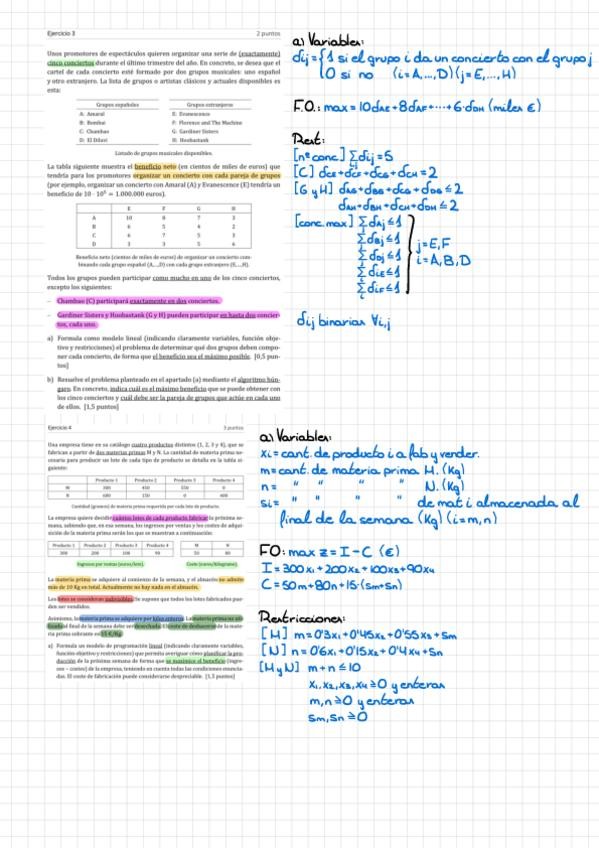 Ejercicio 3 2 puntos
Unos promotores de espectáculos quieren organizar una serie de (exactamente)
cinco conciertos durante el último trimestre del año. En concreto, se desea que el
cartel de cada concierto esté formado por dos grupos musicales: uno español
y otro extranjero. La lista de grupos o artistas clásicos y actuales disponibles es
esta:
Grupos españoles Grupos extranjeros
A: Amaral E: Evanescence
B: Bambai F: Florence and The Machine
C: Chambao G: Gardiner Sisters
D: El Dilori H: Hoobastank
Listado de grupos musicales disponibles.
La tabla siguiente muestra el beneficio neto (en cientos de miles de euros) que
tendría para los promotores organizar un concierto con cada pareja de grupos
(por ejemplo, organizar un concierto con Amaral (A) y Evanescence (E) tendría un
beneficio de 10 · 10⁵ = 1.000.000 euros).
E F G H
A 10 8 7 3
B 6 5 4 2
C 6 7 5 3
D 3 3 5 6
Beneficio neto (cientos de miles de euros) de organizar un concierto com-
binando cada grupo español (A,...,D) con cada grupo extranjero (E,...,H).
Todos los grupos pueden participar como mucho en uno de los cinco conciertos,
excepto los siguientes:
– Chambao (C) participará exactamente en dos conciertos.
– Gardiner Sisters y Hoobastank (G y H) pueden participar en hasta dos concier-
tos, cada uno.
a) Formula como modelo lineal (indicando claramente variables, función obje-
tivo y restricciones) el problema de determinar qué dos grupos deben compo-
ner cada concierto, de forma que el beneficio sea el máximo posible. [0,5 pun-
tos]
b) Resuelve el problema planteado en el apartado (a) mediante el algoritmo hún-
garo. En concreto, indica cuál es el máximo beneficio que se puede obtener con
los cinco conciertos y cuál debe ser la pareja de grupos que actúe en cada uno
de ellos. [1,5 puntos]
a) Variables:
dij = { 1 si el grupo i da un concierto con el grupo j
0 si no (i=A,...,D)(j=E,...,H)
F.O.: max = 10dAE+8dAF+....+6·dDH (miles €)
Rest:
[nº conc] Σdij=5
[C] dCE+dCF+dCG+dCH=2
[G y H] dAG+dBG+dCG+dDG≤2
dAH+dBH+dCH+dDH≤2
[conc.max] Σdaj≤1
Σdbj≤1
Σddj≤1
ΣdiE≤1
ΣdiF≤1
j=E,F
i=A,B,D
dij binarias ∀i,j
Ejercicio 4 3 puntos
Una empresa tiene en su catálogo cuatro productos distintos (1, 2, 3 y 4), que se
fabrican a partir de dos materias primas M y N. La cantidad de materia prima nece-
saria para producir un lote de cada tipo de producto se detalla en la tabla si-
guiente:
Producto 1 Producto 2 Producto 3 Producto 4
M 300 450 550 0
N 600 150 0 400
Cantidad (gramos) de materia prima requerida por cada lote de producto.
La empresa quiere decidir cuántos lotes de cada producto fabricar la próxima se-
mana, sabiendo que, en esa semana, los ingresos por ventas y los costes de adqui-
sición de la materia prima serán los que se muestran a continuación:
Producto 1 Producto 2 Producto 3 Producto 4 M N
300 200 100 90 50 80
Ingresos por ventas (euros/lote). Coste (euros/kilogramo).
La materia prima se adquiere al comienzo de la semana, y el almacén no admite
más de 10 Kg en total. Actualmente no hay nada en el almacén.
Los lotes se consideran indivisibles. Se supone que todos los lotes fabricados pue-
den ser vendidos.
Asimismo, la materia prima se adquiere por kilos enteros. La materia prima no uti-
lizada al final de la semana debe ser desechada. El coste de deshacerse de la mate-
ria prima sobrante es 15 €/Kg.
a) Formula un modelo de programación lineal (indicando claramente variables,
función objetivo y restricciones) que permita averiguar cómo planificar la pro-
ducción de la próxima semana de forma que se maximice el beneficio (ingre-
sos – costes) de la empresa, teniendo en cuenta todas las condiciones enuncia-
das. El coste de fabricación puede considerarse despreciable. [1,5 puntos]
a) Variables:
xi = cant. de producto i a fab y vender.
m = cant. de materia prima M. (Kg)
n = " " " " N. (Kg)
si = " " " " de mat i almacenada al
final de la semana (Kg) (i=m,n)
FO: max z = I – C (€)
I = 300x1+200x2+100x3+90x4
C = 50m+80n+15·(sm+sn)
Restricciones:
[M] m=0'3x1+0'45x2+0'55x3+sm
[N] n=0'6x1+0'15x2+0'4x4+sn
[M y N] m+n≤10
x1,x2,x3,x4≥0 y enteras
m,n≥0 y enteras
sm,sn≥0